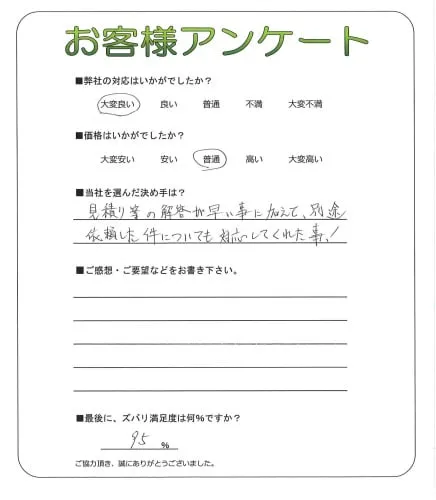 お客様アンケート
■弊社の対応はいかがでしたか？
大変良い 良い 普通 不満 大変不満
■価格はいかがでしたか？
大変安い 安い 普通 高い 大変高い
■当社を選んだ決め手は？
見積り等の解答が早い事に加えて、別途
依頼した件についても対応してくれた事！
■ご感想・ご要望などをお書き下さい。
■最後に、ズバリ満足度は何%ですか？
95 %
ご協力頂き、誠にありがとうございました。